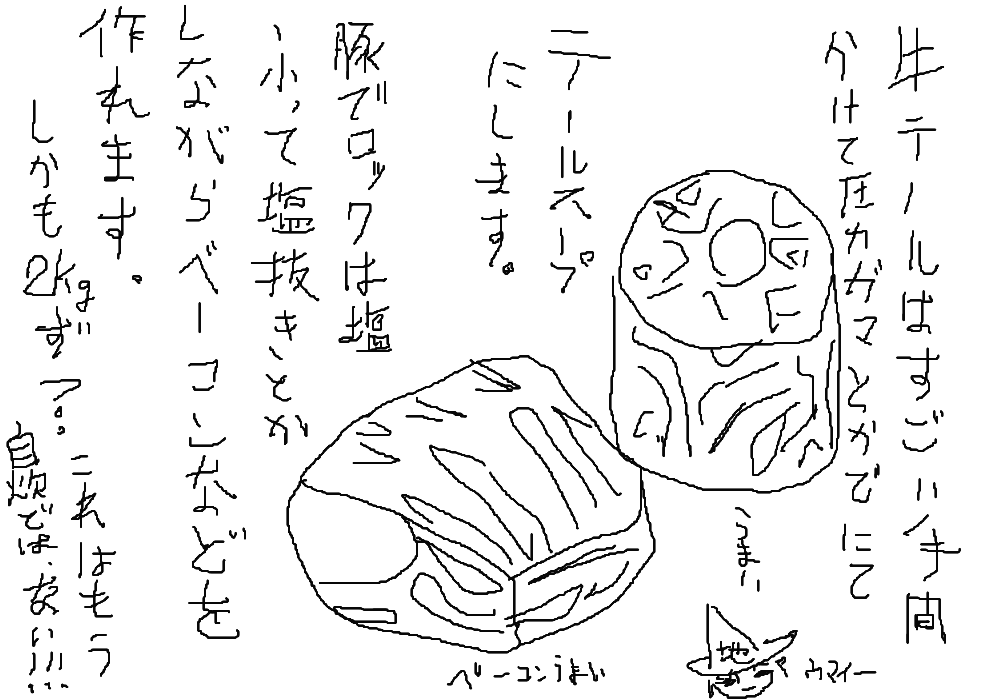 牛テールはすごい手間
かけて圧力ガマとかでにて
テールスープ
にします。
豚でロックは塩
小って塩抜きとか
しながらベーコンなどを
作れます。
しかも2kgずつ。これはもう
自炊ではない!!!
うまい
ベーコンうまい
地
ウマイー